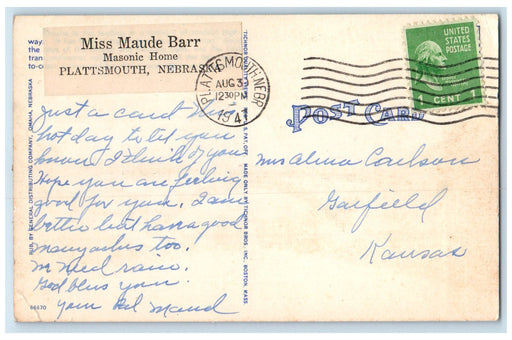 Miss Maude Barr
Masonic Home
PLATTSMOUTH, NEBRASKA
way
the
tran
to-co
PLATTSMOUTH, NEBR.
AUG 3
1230PM
1947
UNITED
STATES
POSTAGE
1 CENT 1
POST CARD
Just a card this
hot day to let you
know I think of you
Hope you are feeling
good for you. I am
better but have a good
many aches too.
need rain.
God bless you
your Maud
Mrs Alma Carlson
Garfield
Kansas
PUB. BY GENERAL DISTRIBUTING COMPANY, OMAHA, NEBRASKA
MADE ONLY BY TICHNOR BROS., INC., BOSTON, MASS.
66670